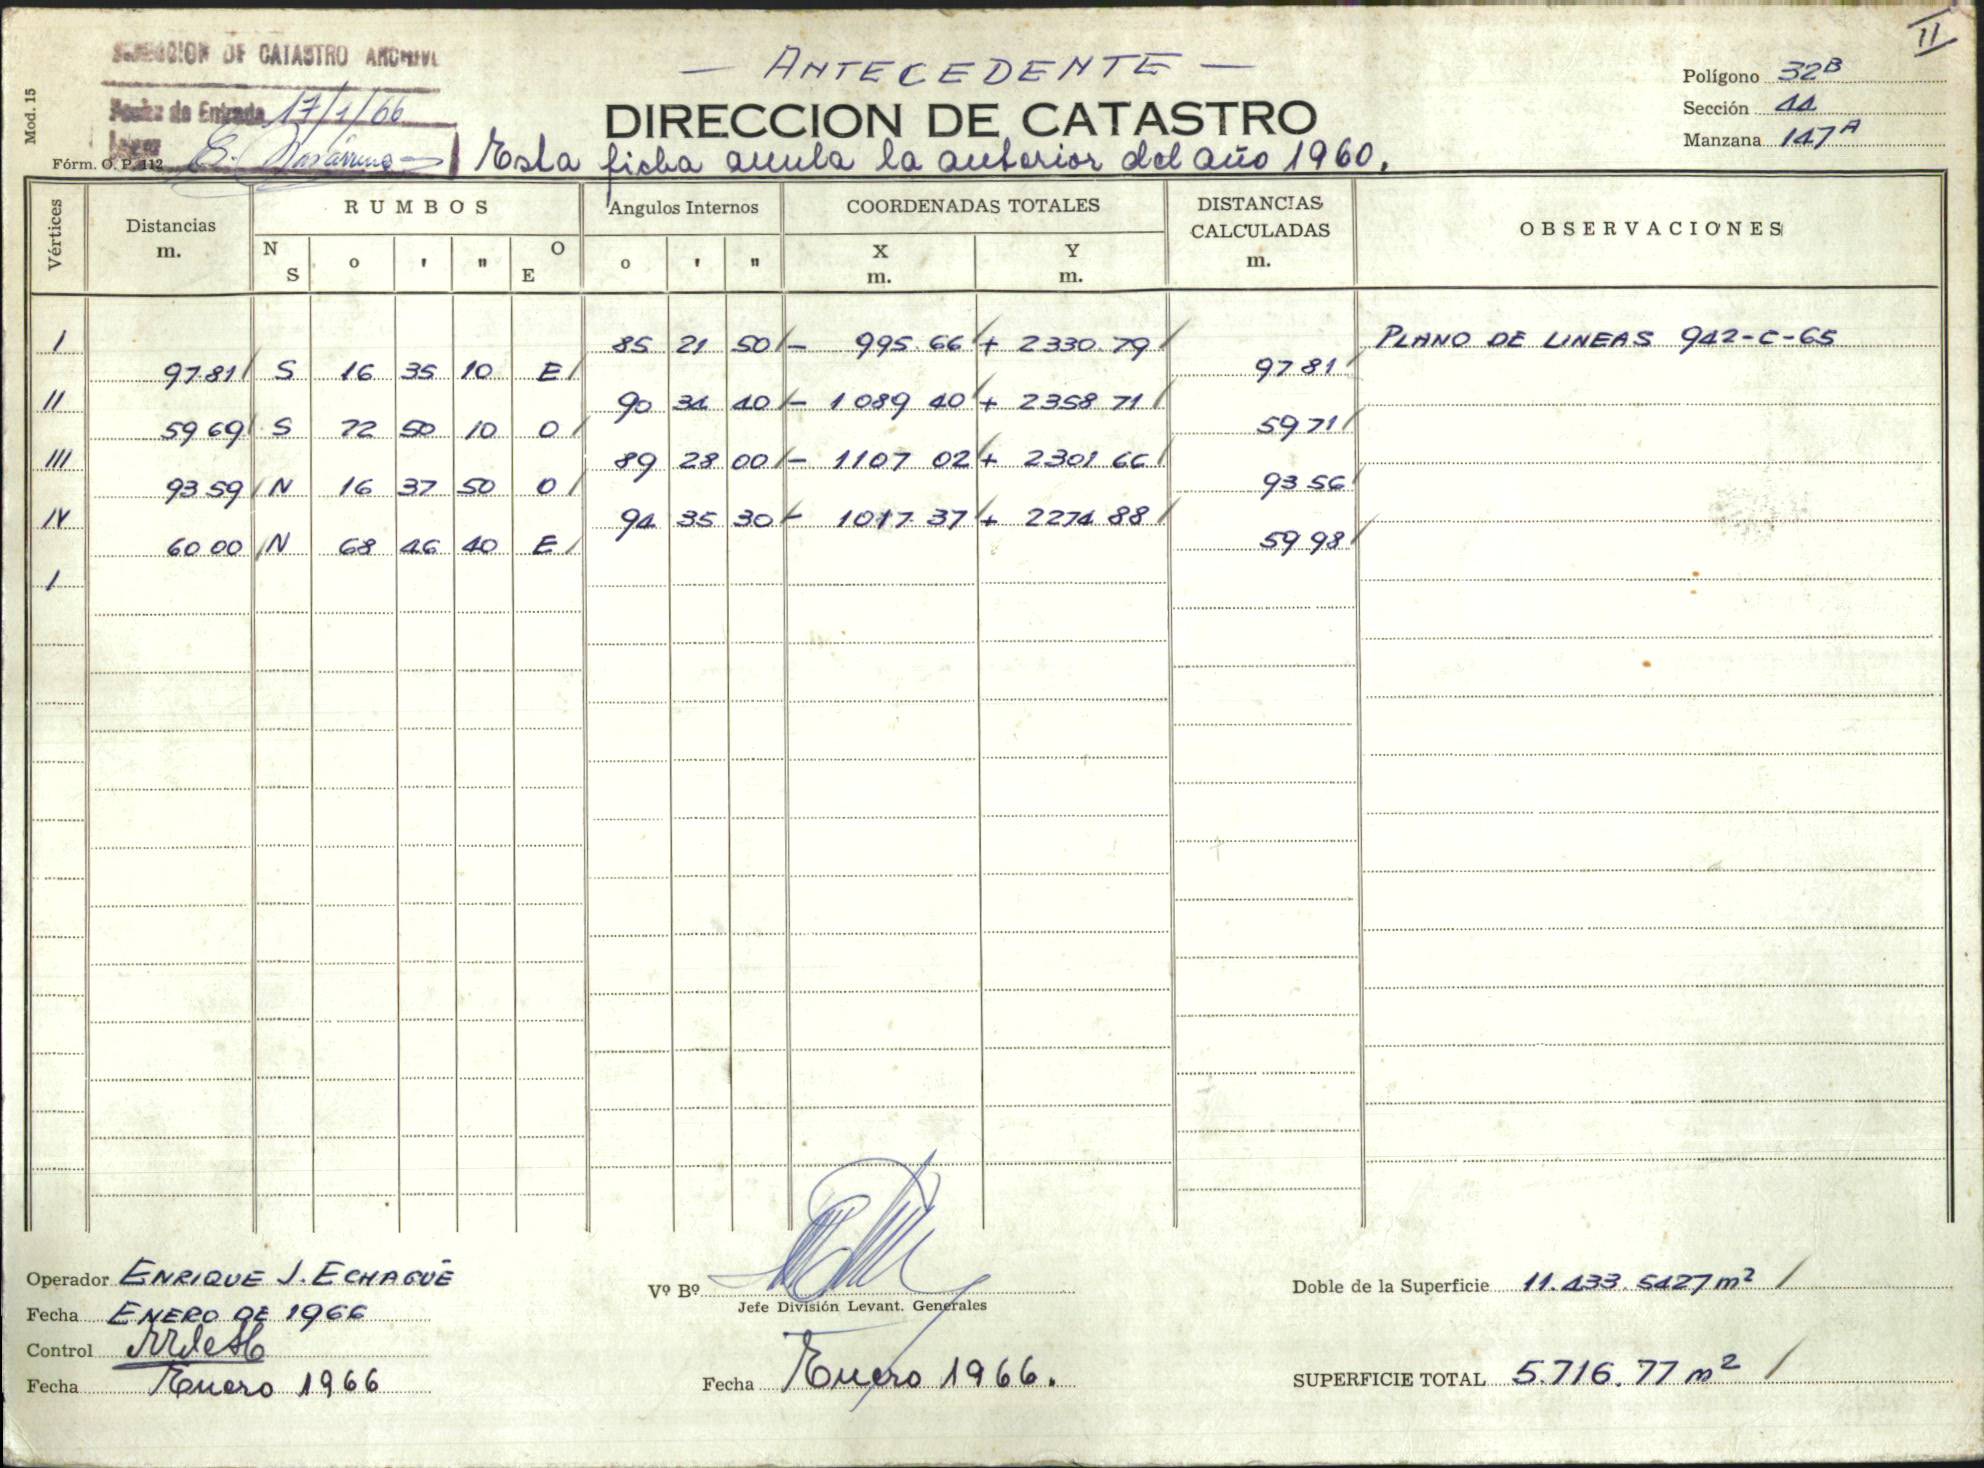 II
SECCION DE CATASTRO ARCHIVO
— ANTECEDENTE —
Polígono 32B
DIRECCION DE CATASTRO
Sección 44
Mod. 15
Fecha de Entrada 17/1/66
Manzana 147A
Fórm. O. P. 112
Esta ficha anula la anterior del año 1960.
Vértices
Distancias m.
RUMBOS
Angulos Internos
COORDENADAS TOTALES
DISTANCIAS CALCULADAS m.
OBSERVACIONES
N S o ' " O E
o ' "
X m. Y m.
I 85 21 50 - 995.66 + 2330.79 PLANO DE LINEAS 942-C-65
97.81 S 16 35 10 E 97 81
II 90 34 40 - 1 089 40 + 2358 71
59 69 S 72 50 10 O 59 71
III 89 28 00 - 1107 02 + 2301 66
93 59 N 16 37 50 O 93 56
IV 94 35 30 - 1017.37 + 2274 88
60 00 N 68 46 40 E 59 98
I
Operador ENRIQUE J. ECHAGÜE
Vº Bº
Doble de la Superficie 11.433.5427 m2
Jefe División Levant. Generales
Fecha ENERO DE 1966
Control
Fecha Enero 1966
Fecha Enero 1966.
SUPERFICIE TOTAL 5.716.77 m2